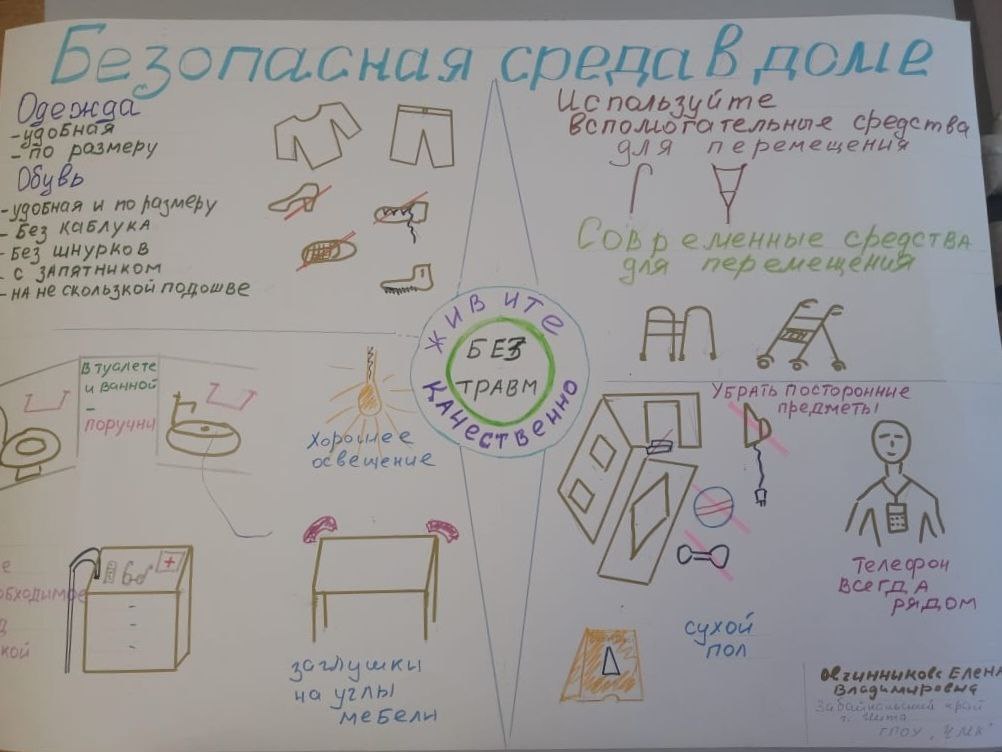 Безопасная среда в доме
Одежда
- удобная
- по размеру
Обувь
- удобная и по размеру
- Без каблука
- Без шнурков
- с запятником
- на не скользкой подошве
Используйте
вспомогательные средства
для перемещения
Современные средства
для перемещения
ЖИВИТЕ
КАЧЕСТВЕННО
БЕЗ
ТРАВМ
В туалете
и ванной
-
поручни
Хорошее
освещение
Убрать посторонние
предметы!
Телефон
всегда
рядом
заглушки
на углы
мебели
сухой
пол
Овчинникова Елена
Владимировна
Забайкальский край
г. Чита
ГПОУ „ЧМК"